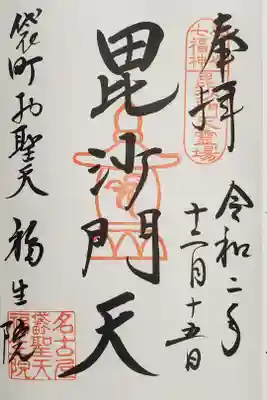 奉拝
七福神
毘沙門天霊場
令和二年
十二月十五日
毘沙門天
袋町お聖天 福生院
名古屋
袋町聖天
福生院